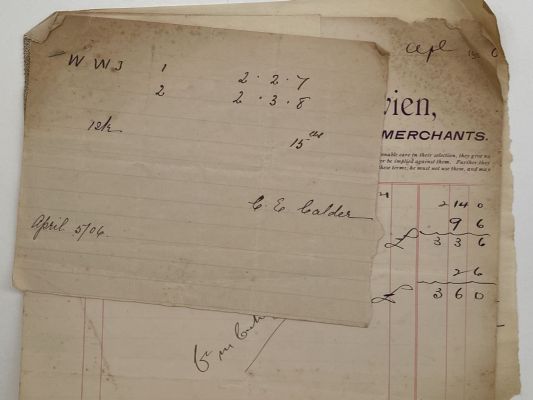 W W J 1 2 . 2 . 7
2 2 . 3 . 8
12/2 15
C. E. Calder
April 5/06.
Apl
vien,
MERCHANTS.
onable care in their selection, they give no
er be implied against them. Further they
these terms, he must not use them, and may
2 14 0
9 6
£ 3 3 6
2 6
£ 3 6 0